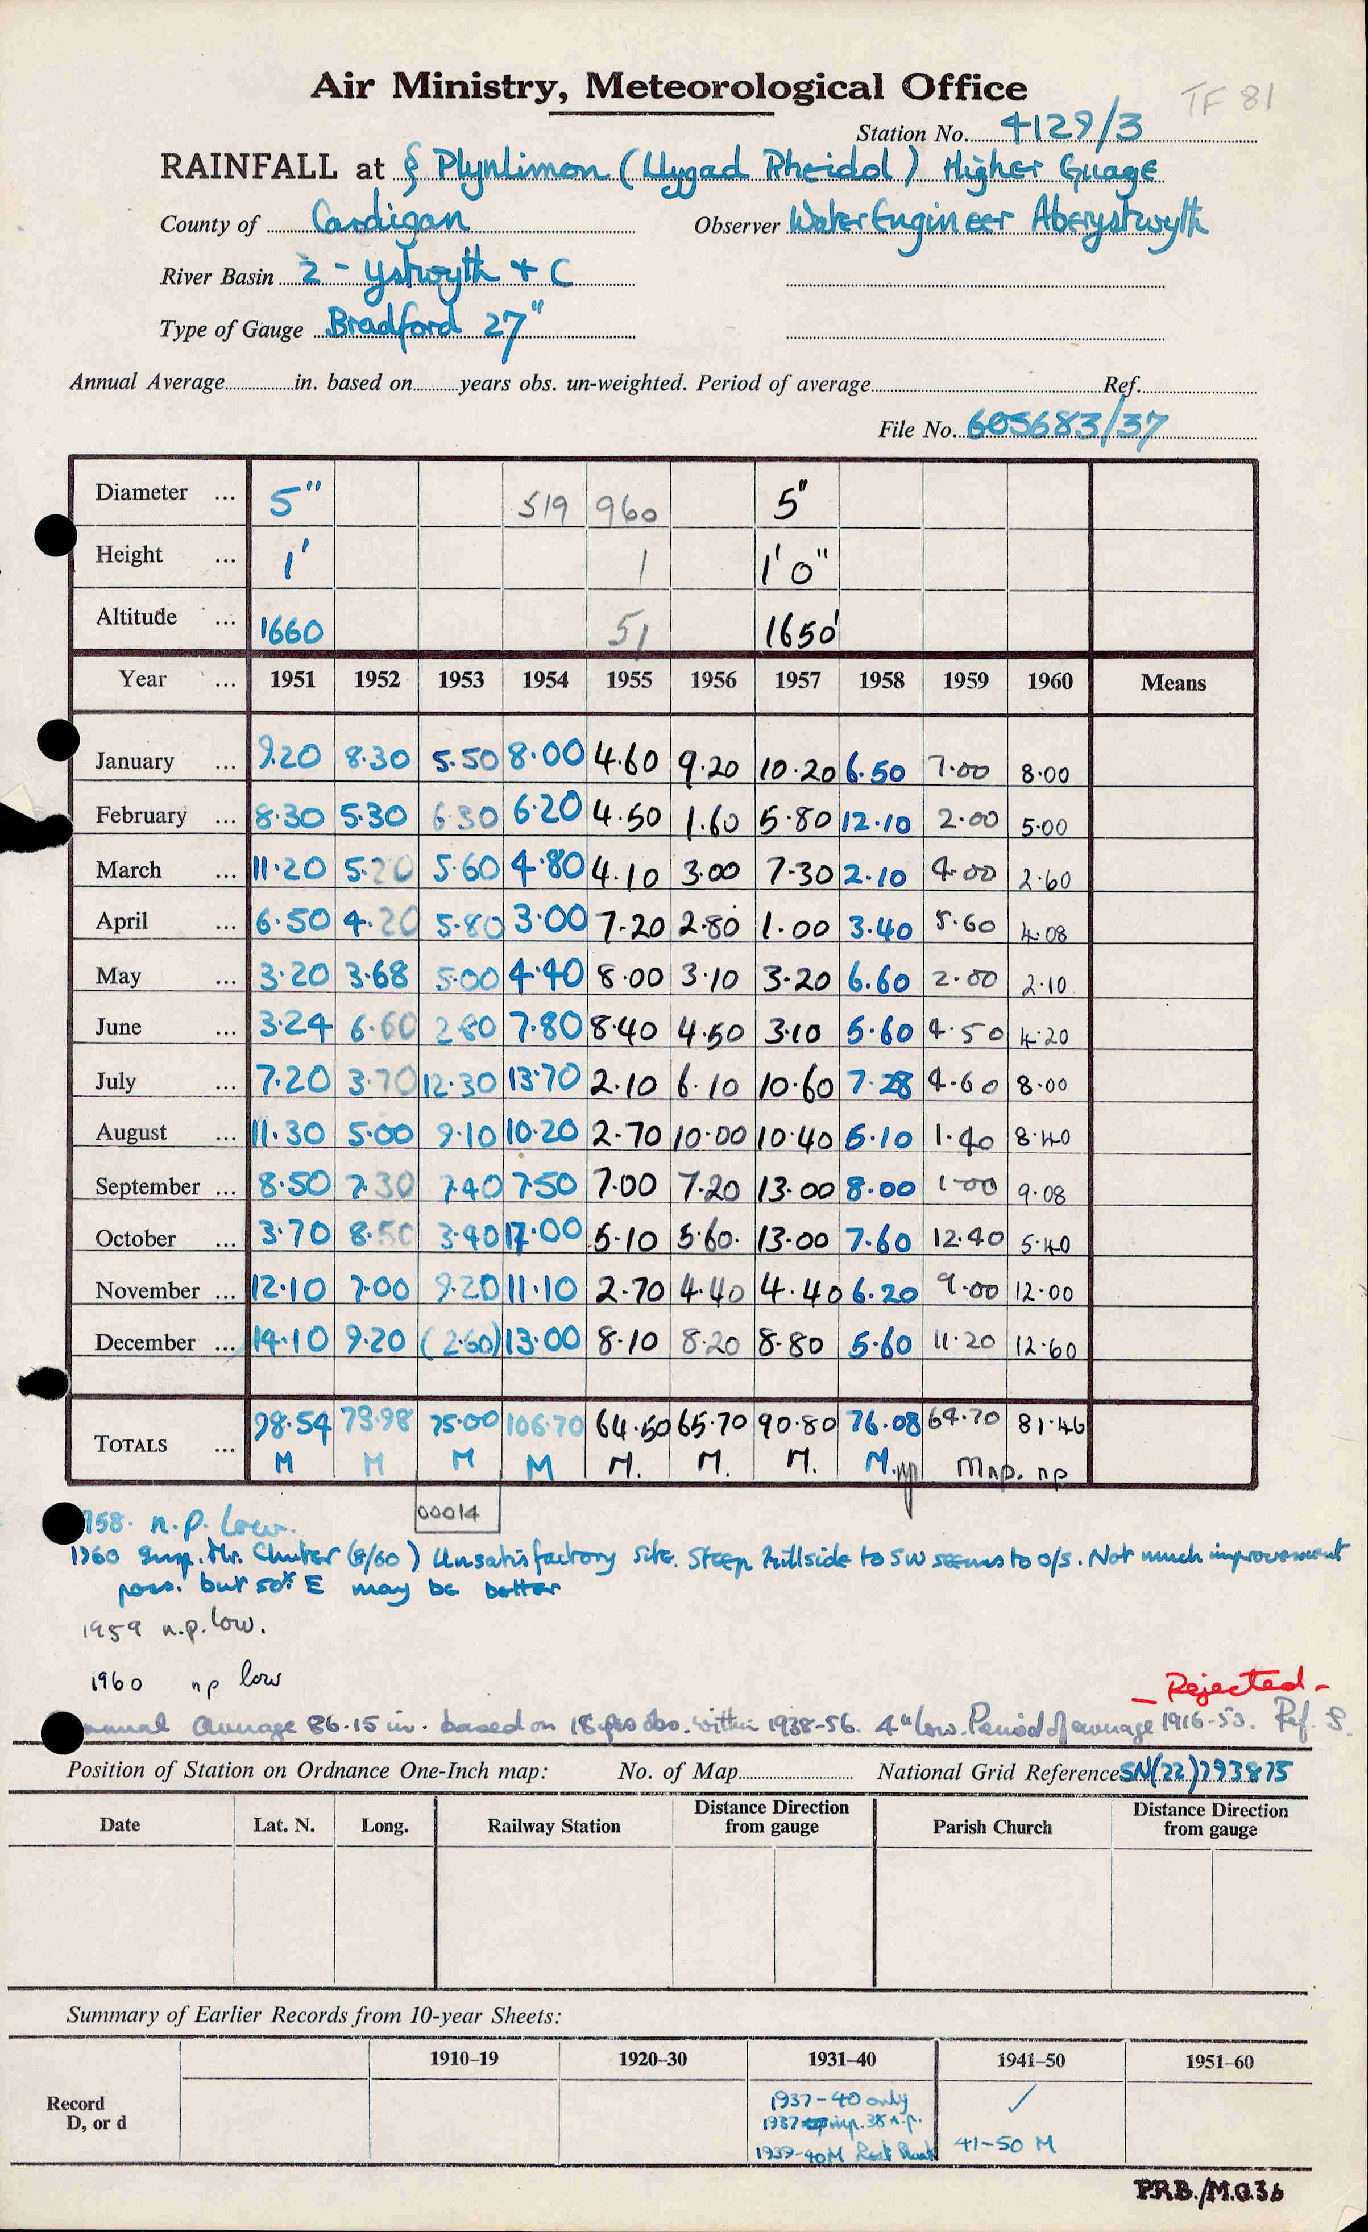 Air Ministry, Meteorological Office
TF 81
Station No. 4129/3
RAINFALL at § Plynlimon (Llygad Rheidol) Higher Guage
County of Cardigan Observer Water Engineer Aberystwyth
River Basin 2 - Ystwyth + C
Type of Gauge Bradford 27"
Annual Average in. based on years obs. un-weighted. Period of average Ref.
File No. 605683/37
Diameter ... 5" 519 960 5"
Height ... 1' 1 1' 0"
Altitude ... 1660 51 1650'
Year ... 1951 1952 1953 1954 1955 1956 1957 1958 1959 1960 Means
January ... 9.20 8.30 5.50 8.00 4.60 9.20 10.20 6.50 7.00 8.00
February ... 8.30 5.30 6.30 6.20 4.50 1.60 5.80 12.10 2.00 5.00
March ... 11.20 5.20 5.60 4.80 4.10 3.00 7.30 2.10 4.00 2.60
April ... 6.50 4.20 5.80 3.00 7.20 2.80 1.00 3.40 5.60 4.08
May ... 3.20 3.68 5.00 4.40 8.00 3.10 3.20 6.60 2.00 2.10
June ... 3.24 6.60 2.80 7.80 8.40 4.50 3.10 5.60 4.50 4.20
July ... 7.20 3.70 12.30 13.70 2.10 6.10 10.60 7.28 4.60 8.00
August ... 11.30 5.00 9.10 10.20 2.70 10.00 10.40 5.10 1.40 8.40
September ... 8.50 7.30 7.40 7.50 7.00 7.20 13.00 8.00 1.00 9.08
October ... 3.70 8.50 3.90 17.00 5.10 5.60. 13.00 7.60 12.40 5.40
November ... 12.10 7.00 9.20 11.10 2.70 4.40 4.40 6.20 9.00 12.00
December ... 14.10 9.20 (2.60) 13.00 8.10 8.20 8.80 5.60 11.20 12.60
TOTALS ... 98.54 73.98 75.00 106.70 64.50 65.70 90.80 76.08 64.70 81.46
M M M M M. M. M. M. np M np. np
00014
1958. n.p. low.
1960 Insp. Mr. Chuter (8/60) Unsatisfactory site. Steep hillside to SW seems to o/s. Not much improvement
poss. but 50x E may be better
1959 n.p. low.
1960 np low
- Rejected -
Annual average 86.15 in. based on 18 yrs obs. within 1938-56. 4" low. Period of average 1916-50. Ref. S.
Position of Station on Ordnance One-Inch map: No. of Map National Grid Reference SN(22)793875
Date Lat. N. Long. Railway Station Distance Direction from gauge Parish Church Distance Direction from gauge
Summary of Earlier Records from 10-year Sheets:
1910–19 1920–30 1931–40 1941–50 1951–60
Record
D, or d
1937-40 only ✓
1937 imp. 38 n.p.
1939-40 M 41-50 M
P.R.B./M.O.36